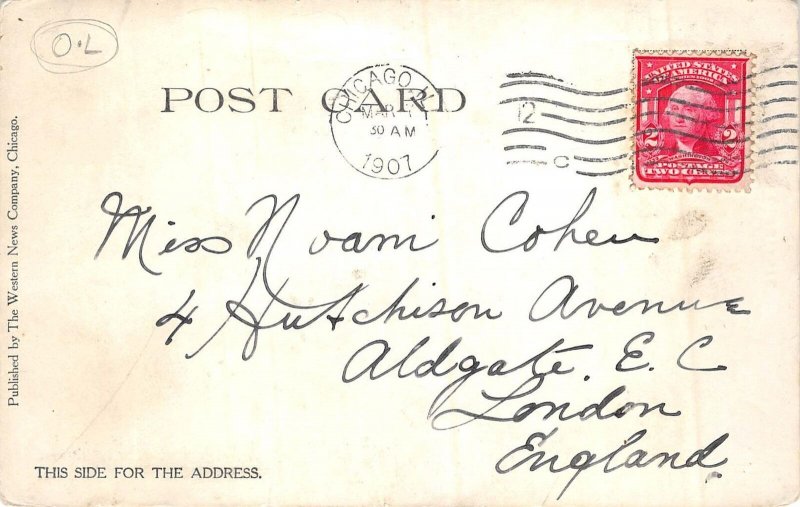 O.L
POST CARD
CHICAGO
MAR
30 AM
1907
12
C
UNITED STATES
OF AMERICA
2 2
WASHINGTON
POSTAGE
TWO CENTS
Miss Noami Cohen
4 Hutchison Avenue
Aldgate. E. C
London
England.
THIS SIDE FOR THE ADDRESS.
Published by The Western News Company, Chicago.